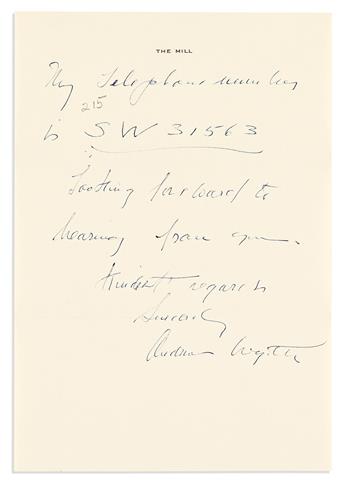 THE MILL
My Telephone number
215
is SW 31563
Looking forward to
hearing from you.
Kindest regards
Sincerely
Andrew Wyeth